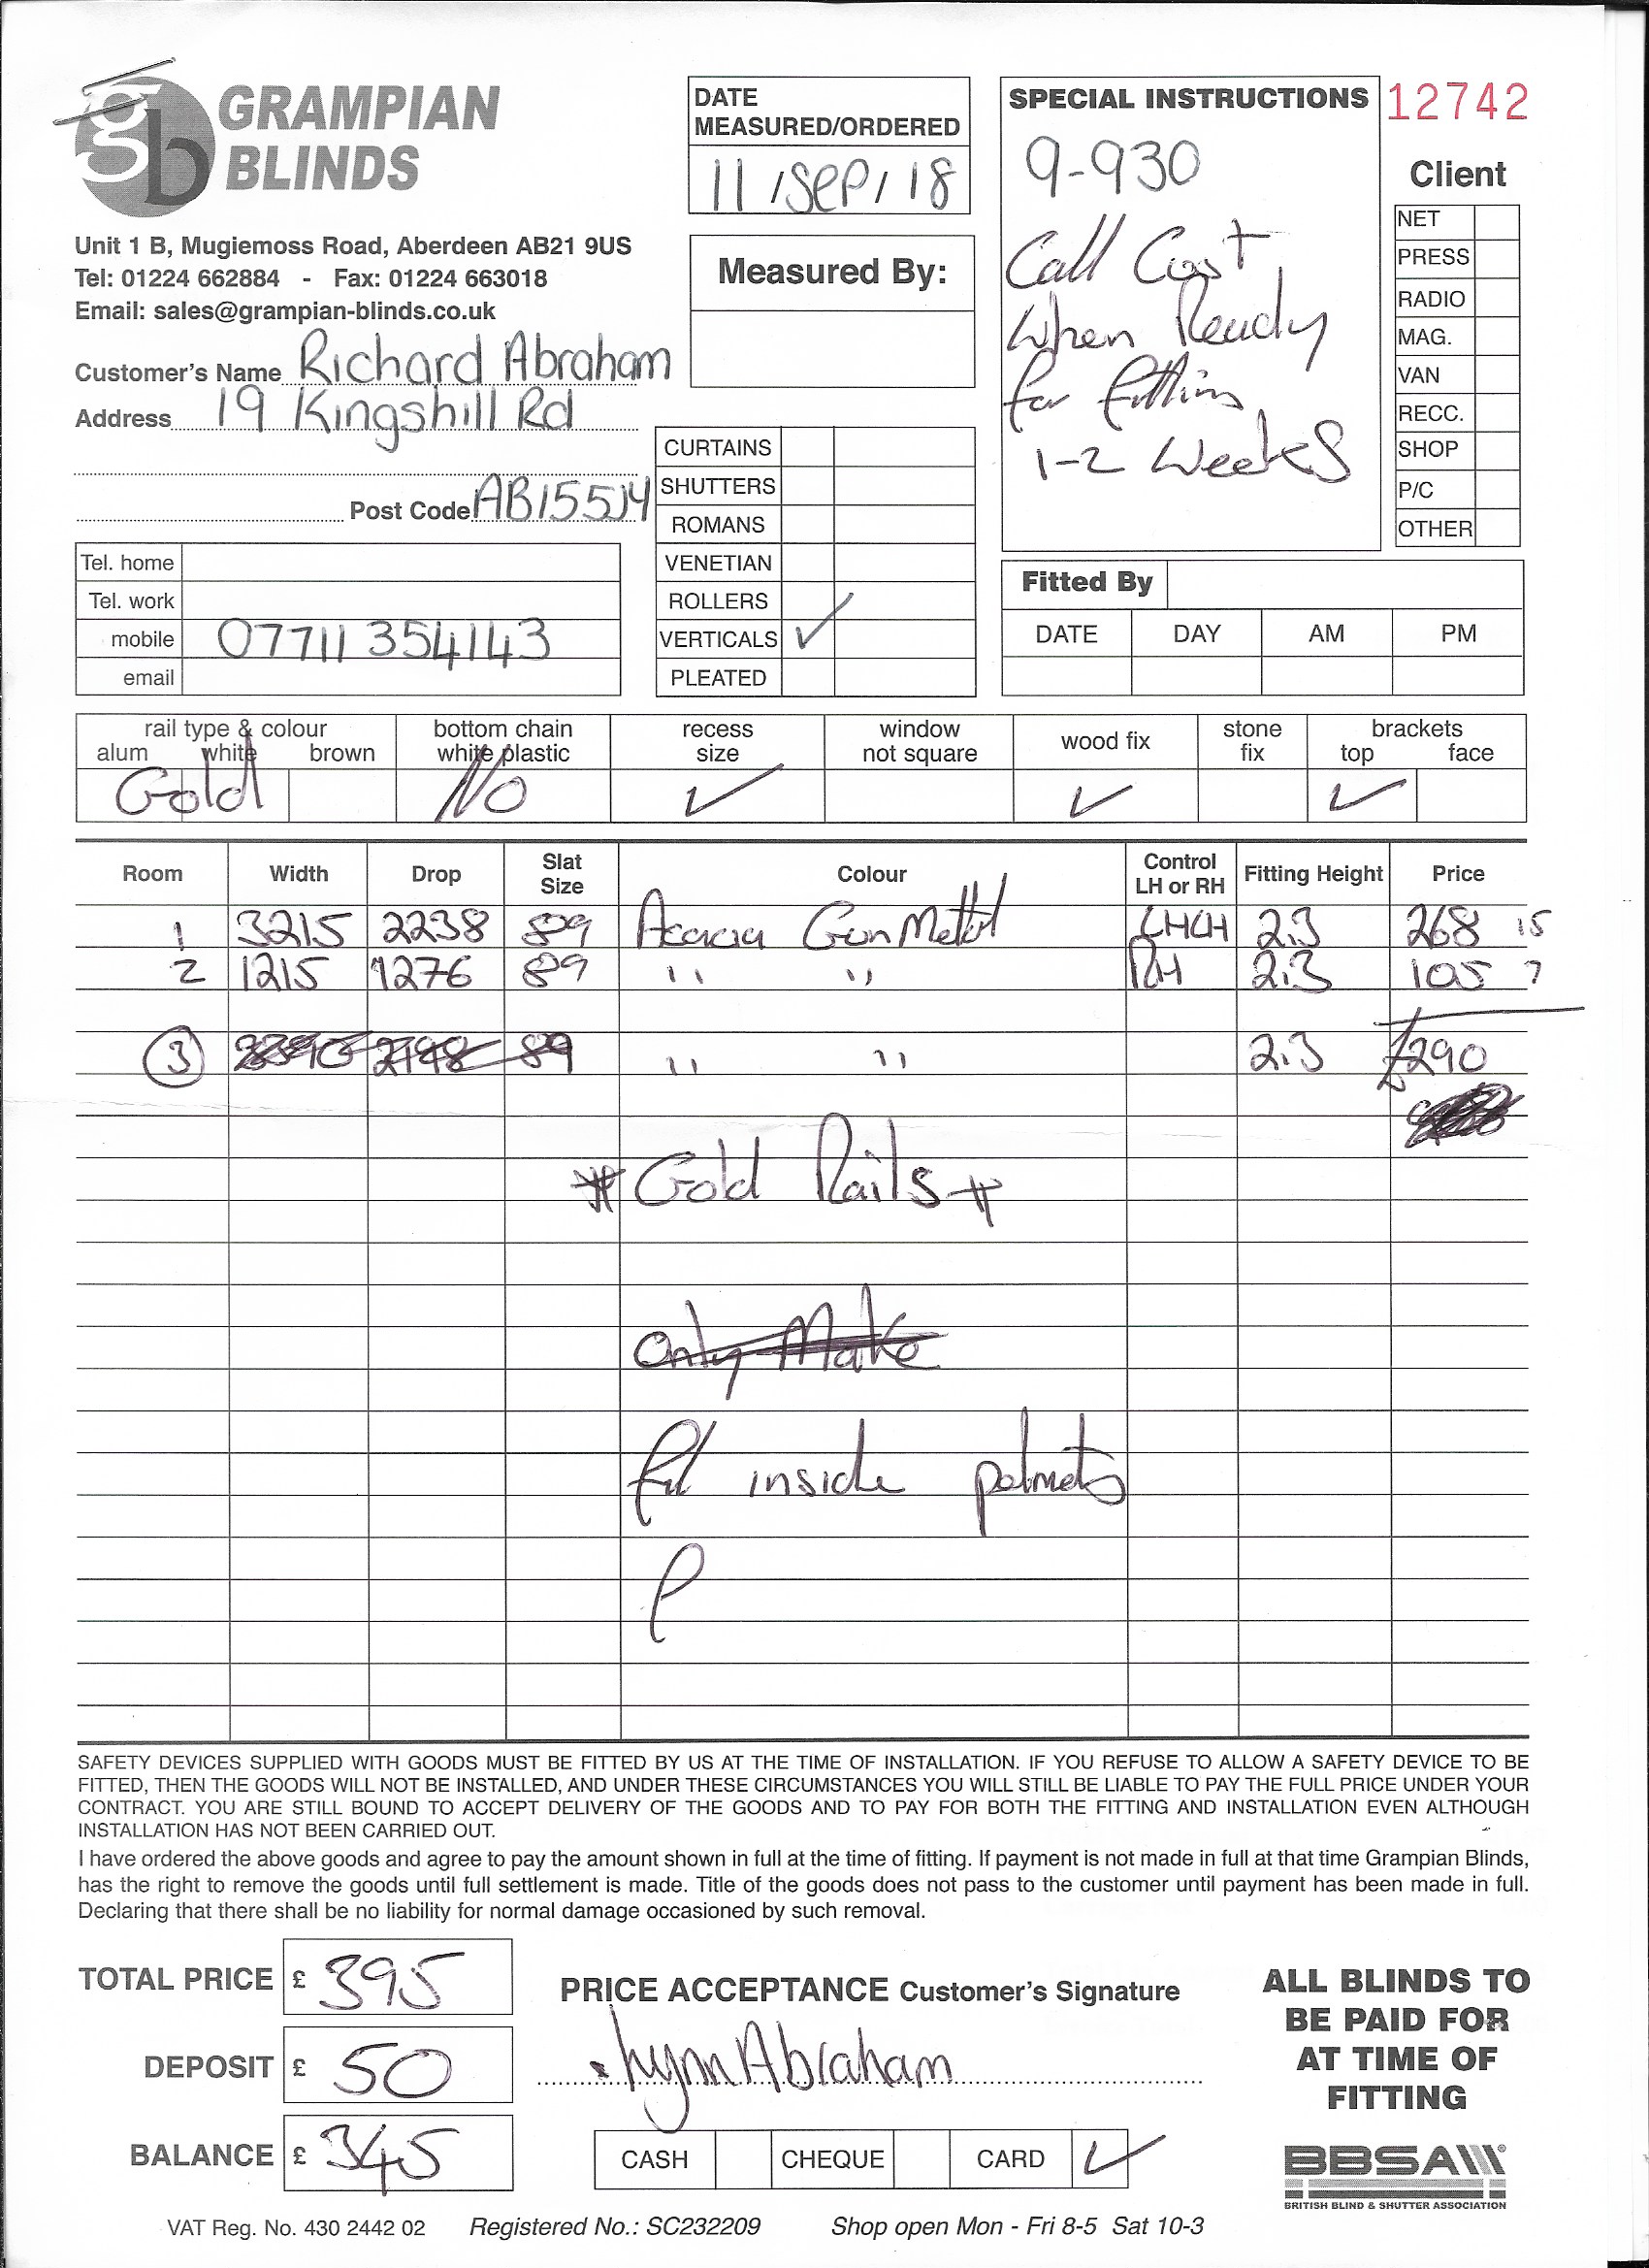 gb GRAMPIAN
BLINDS
Unit 1 B, Mugiemoss Road, Aberdeen AB21 9US
Tel: 01224 662884 - Fax: 01224 663018
Email: sales@grampian-blinds.co.uk
Customer's Name Richard Abraham
Address 19 Kingshill Rd
Post Code AB15 5JY
Tel. home
Tel. work
mobile 07711 354143
email
DATE
MEASURED/ORDERED
11/SEP/18
Measured By:
CURTAINS
SHUTTERS
ROMANS
VENETIAN
ROLLERS
VERTICALS ✓
PLEATED
SPECIAL INSTRUCTIONS
9-930
Call Cust
When Ready
for fitting
1-2 Weeks
12742
Client
NET
PRESS
RADIO
MAG.
VAN
RECC.
SHOP
P/C
OTHER
Fitted By
DATE DAY AM PM
rail type & colour bottom chain recess window wood fix stone brackets
alum white brown white plastic size not square fix top face
Gold No ✓ ✓ ✓
Room Width Drop Slat Size Colour Control LH or RH Fitting Height Price
1 3215 2238 89 Acacia Gun Mettal LHCH 2.3 268 15
2 1215 1276 89 " " RH 2.3 105 7
3 89 " " 2.3 £290
* Gold Rails *
Only Make
fit inside pelmets
TOTAL PRICE £ 395
DEPOSIT £ 50
BALANCE £ 345
SAFETY DEVICES SUPPLIED WITH GOODS MUST BE FITTED BY US AT THE TIME OF INSTALLATION. IF YOU REFUSE TO ALLOW A SAFETY DEVICE TO BE
FITTED, THEN THE GOODS WILL NOT BE INSTALLED, AND UNDER THESE CIRCUMSTANCES YOU WILL STILL BE LIABLE TO PAY THE FULL PRICE UNDER YOUR
CONTRACT. YOU ARE STILL BOUND TO ACCEPT DELIVERY OF THE GOODS AND TO PAY FOR BOTH THE FITTING AND INSTALLATION EVEN ALTHOUGH
INSTALLATION HAS NOT BEEN CARRIED OUT.
I have ordered the above goods and agree to pay the amount shown in full at the time of fitting. If payment is not made in full at that time Grampian Blinds,
has the right to remove the goods until full settlement is made. Title of the goods does not pass to the customer until payment has been made in full.
Declaring that there shall be no liability for normal damage occasioned by such removal.
PRICE ACCEPTANCE Customer's Signature
Lynn Abraham
CASH CHEQUE CARD ✓
ALL BLINDS TO
BE PAID FOR
AT TIME OF
FITTING
BBSA
BRITISH BLIND & SHUTTER ASSOCIATION
VAT Reg. No. 430 2442 02 Registered No.: SC232209 Shop open Mon - Fri 8-5 Sat 10-3